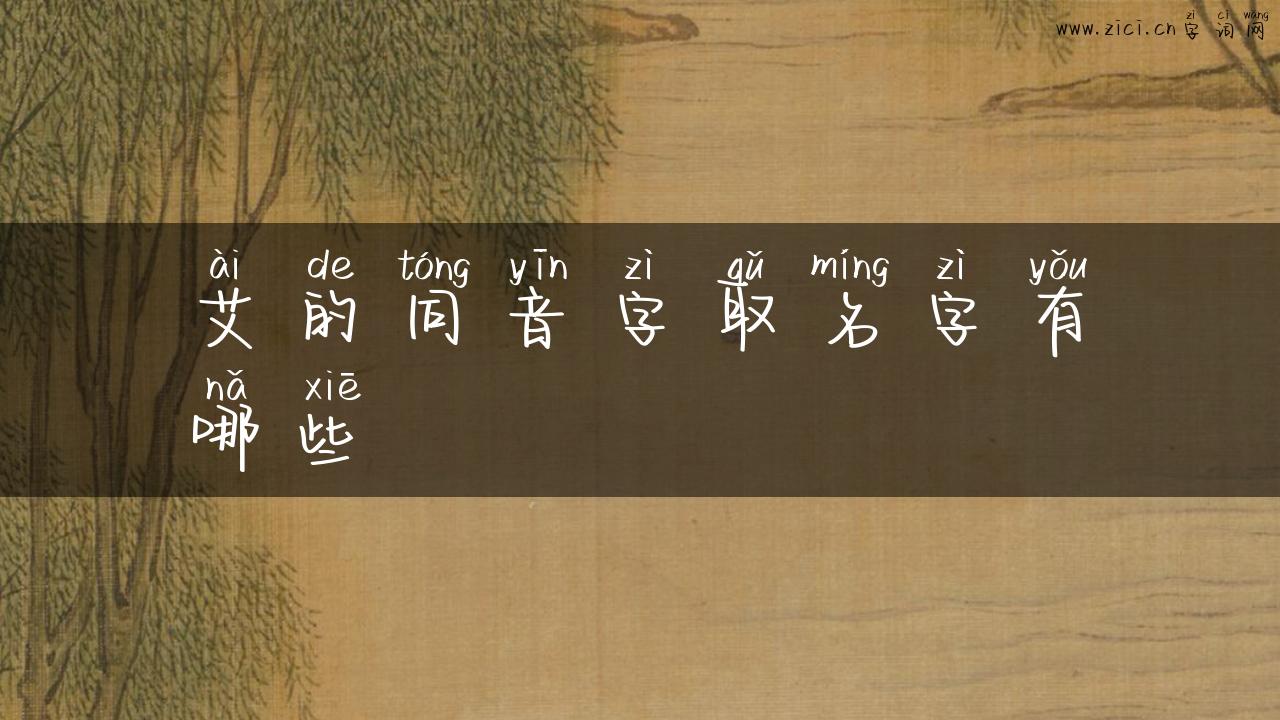 zì cí wǎng
www.zici.cn字词网
ài de tóng yīn zì qǔ míng zì yǒu
艾的同音字取名字有
nǎ xiē
哪些